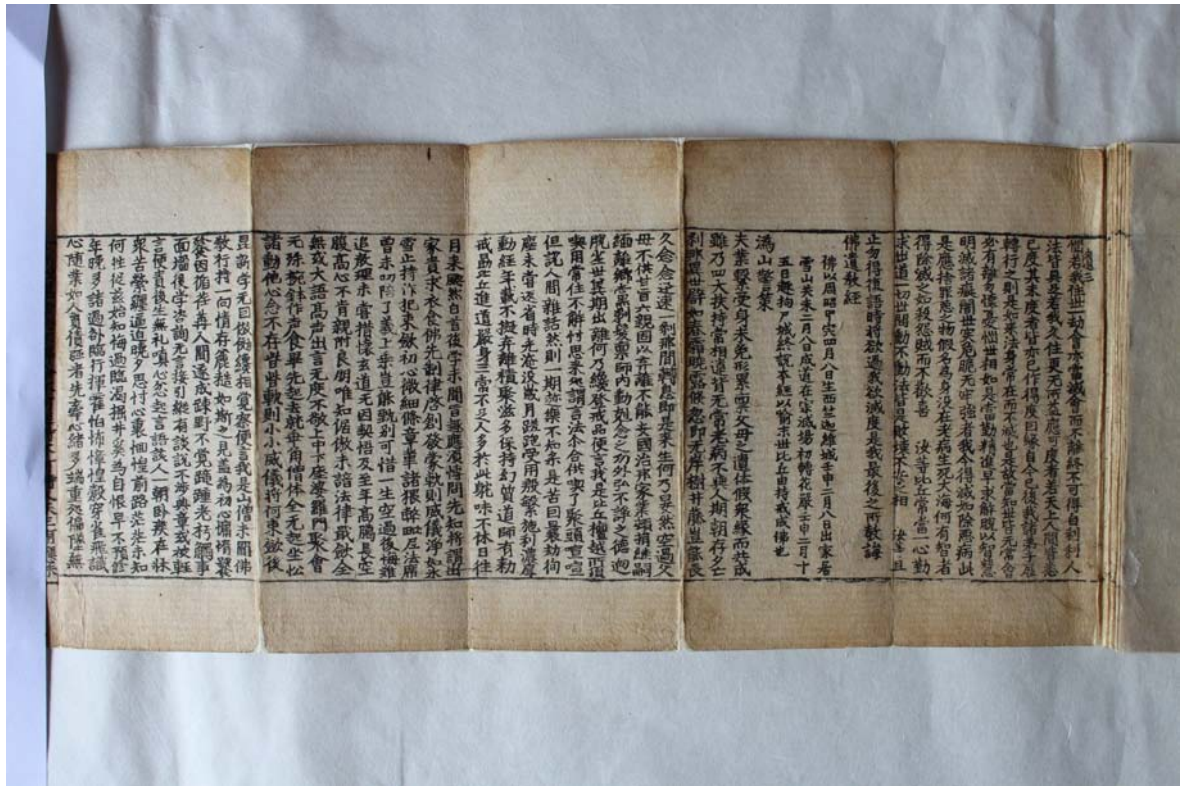 惱若我住世一劫會亦當滅會而不離終不可得自利利人
法皆具足若我久住更无所益應可度者若天上人間皆悉
已度其未度者皆亦已作得度因緣自今已後我諸弟子展
轉行之則是如來法身常在而不滅也是故當知世皆无常會
必有離勿懷憂惱世相如是當勤精進早求解脫以智慧
明滅諸癡闇世實危脆无牢強者我今得滅如除惡病此
是應捨罪惡之物假名為身沒在老病生死大海何有智者
得除滅之如殺怨賊而不歡喜 汝等比丘常當一心勤
求出道一切世間動不動法皆是敗壞不安之相 汝等且
止勿得復語時將欲過我欲滅度是我最後之所教誨
佛遺教經
佛以周昭甲寅四月八日生西竺迦維城壬申二月八日出家居
雪山癸未二月八日成道在寂滅場初轉花嚴壬申二月十
五日趣拘尸城終說本經以喻末世比丘由持戒成佛也
潙山警策
夫業繫受身未免形累稟父母之遺体假衆緣而共成
雖乃四大扶持常相違背无常老病不與人期朝存夕亡
刹那異世譬如春霜曉露倐忽即无岸樹井藤豈能長
久念念迅速一刹那間轉息即是來生何乃晏然空過父
母不供甘旨六親固以弃離不能安國治邦家業頓捐継嗣
緬離鄕党剃髮禀師內勤剋念之功外弘不諍之德迥
脫尘世冀期出離何乃纔登戒品便言我是比丘檀越所湏
喫用常住不解忖思來処謂言法尒合供喫了聚頭喧喧
但說人間雜話然則一期趂樂不知樂是苦因曩劫徇
塵未甞返省時光淹沒歲月蹉跎受用殷繁施利濃厚
動經年載不擬弃離積聚滋多保持幻質道師有勅
戒勗比丘進道嚴身三常不足人多於此躭味不休日往
月來颯然白首後學未聞旨趣應湏博問先知將謂出
家貴求衣食佛先制律啓創發蒙軌則威儀淨如氷
雪止持作犯束斂初心微細條章革諸猥弊毗尼法席
曾未叨陪了義上乗豈能甄別可惜一生空過後悔難
追教理未甞措懷玄道无因契悟及至年高臘長空
腹高心不肯親附良朋唯知倨傲未諳法律戢斂全
無或大語高声出言无度不敬上中下座婆羅門聚會
无殊椀鉢作声食畢先起去就乖角僧体全无起坐忪
諸動他心念不存些些軌則小小威儀將何束斂後
昆新學无因倣傚纔相覺察便言我是山僧未聞佛
教行持一向情存麤糙如斯之見盖為初心慵惰饕
餮因循荏苒人間遂成踈野不覺躘踵老朽觸事
面墻後學咨詢无言接引縱有談說不涉典章或被輕
言便責後生無礼嗔心忿起言語該人一朝卧疾在牀
衆苦縈纏逼迫曉夕思忖心裏恛惶前路茫茫未知
何徃從玆始知悔過臨渴掘井奚為自恨早不預修
年晚多諸過咎臨行揮霍怕怖慞惶縠穿雀飛識
心隨業如人負債强者先牽心緒多端重処偏墜無